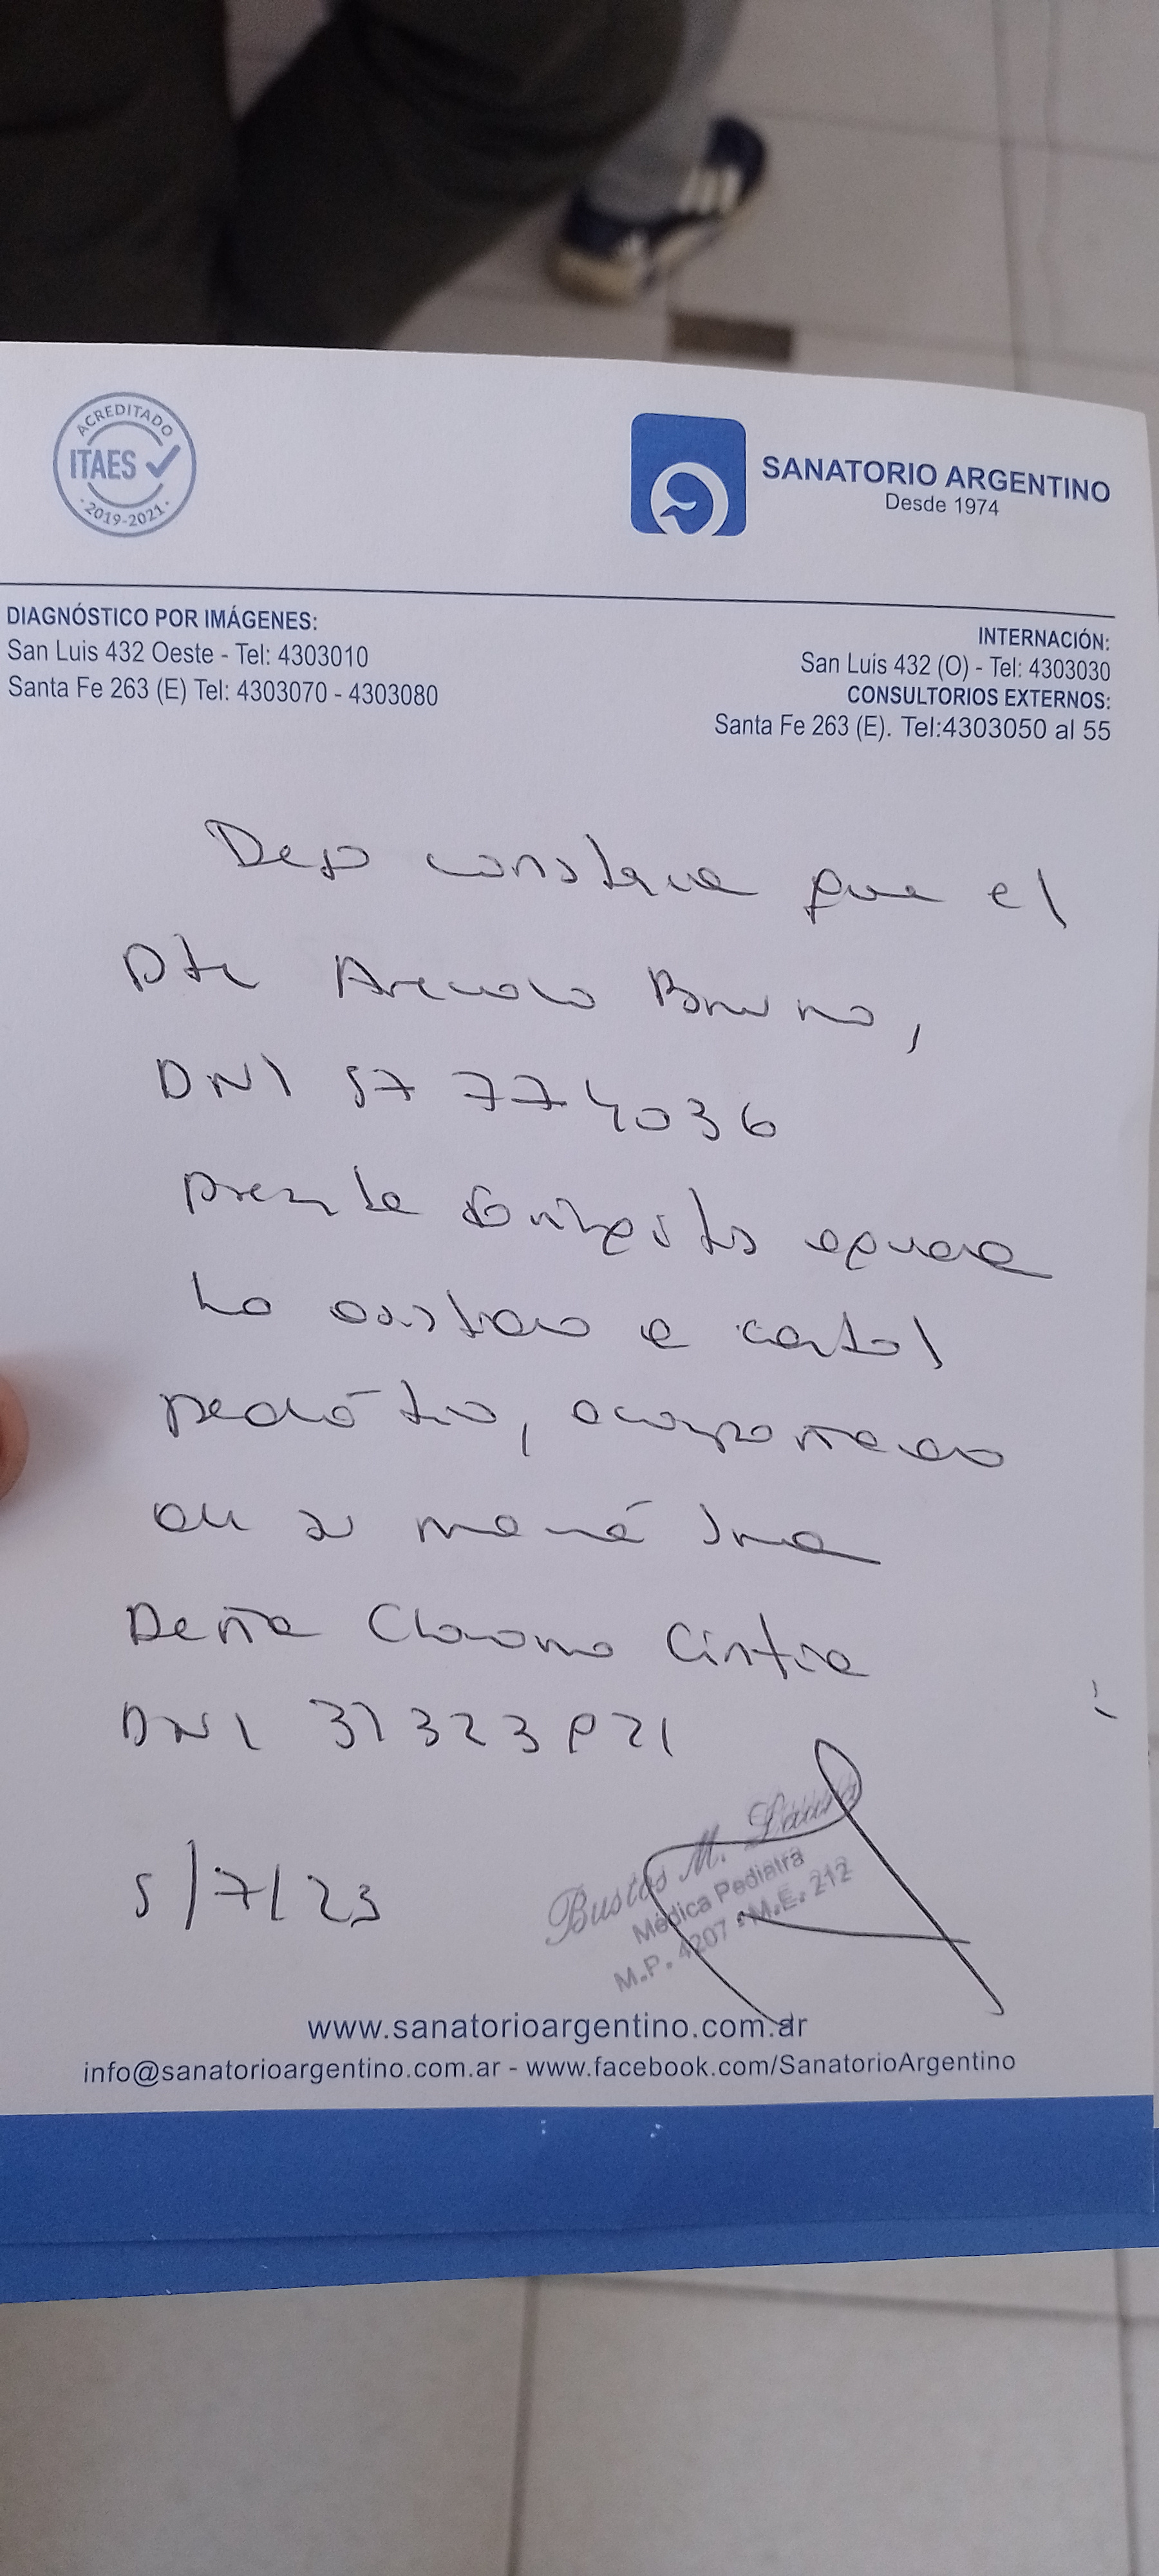 ACREDITADO
ITAES
·2019-2021·
SANATORIO ARGENTINO
Desde 1974
DIAGNÓSTICO POR IMÁGENES:
San Luis 432 Oeste - Tel: 4303010
Santa Fe 263 (E) Tel: 4303070 - 4303080
INTERNACIÓN:
San Luis 432 (O) - Tel: 4303030
CONSULTORIOS EXTERNOS:
Santa Fe 263 (E). Tel:4303050 al 55
Dejo constancia que el
Pte Bruno,
DNI 57 774036
presenta
asistido a control
pediátrico, acompañado
su mamá Sra
Peña Cintia
DNI 31323821
5/7/23
Bustos M. Laura
Médica Pediatra
M.P. 4207 - M.E. 212
www.sanatorioargentino.com.ar
info@sanatorioargentino.com.ar - www.facebook.com/SanatorioArgentino